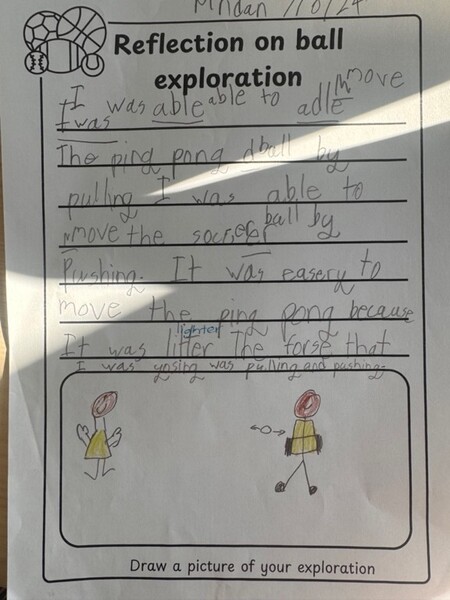 7/6/24
Reflection on ball
exploration
I was able able to adle move
I was
The ping pong dball by
pulling I was able to
move the socrer ball by
Pushing. It was easery to
move the ping pong because
lighter
It was litter The forse that
I was ynsing was pulling and pushing
Draw a picture of your exploration